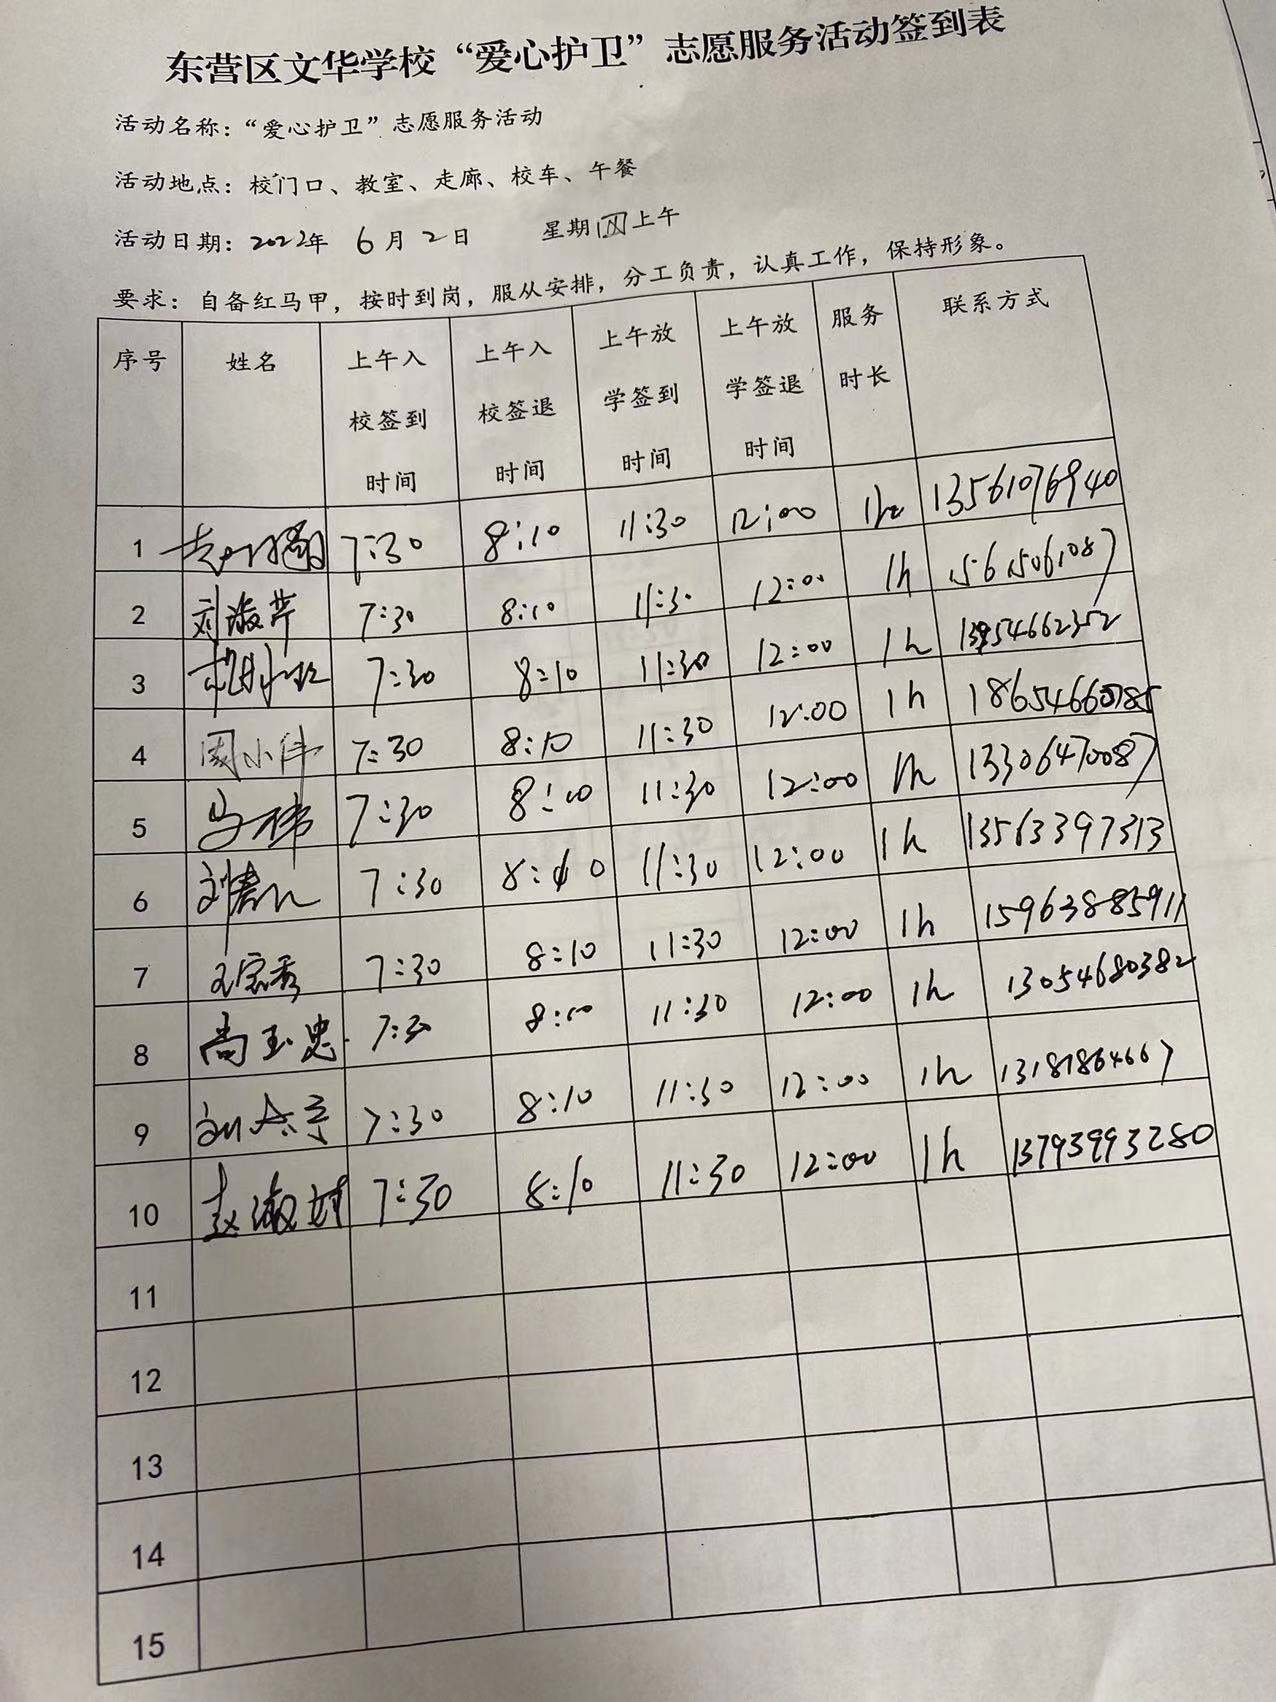 东营区文华学校“爱心护卫”志愿服务活动签到表
活动名称：“爱心护卫”志愿服务活动
活动地点：校门口、教室、走廊、校车、午餐
活动日期：2022年 6月2日 星期四上午
要求：自备红马甲，按时到岗，服从安排，分工负责，认真工作，保持形象。
序号 姓名 上午入校签到时间 上午入校签退时间 上午放学签到时间 上午放学签退时间 服务时长 联系方式
1 7:30 8:10 11:30 12:00 1h 13561076940
2 刘淑芹 7:30 8:10 11:30 12:00 1h 15615061087
3 7:30 8:10 11:30 12:00 1h 13954662352
4 周小伟 7:30 8:10 11:30 12:00 1h 18654660785
5 马伟 7:30 8:10 11:30 12:00 1h 13306470087
6 7:30 8:10 11:30 12:00 1h 13563397313
7 7:30 8:10 11:30 12:00 1h 15963885911
8 尚玉忠 7:30 8:10 11:30 12:00 1h 13054680382
9 7:30 8:10 11:30 12:00 1h 13181864667
10 7:30 8:10 11:30 12:00 1h 13793993280
11
12
13
14
15